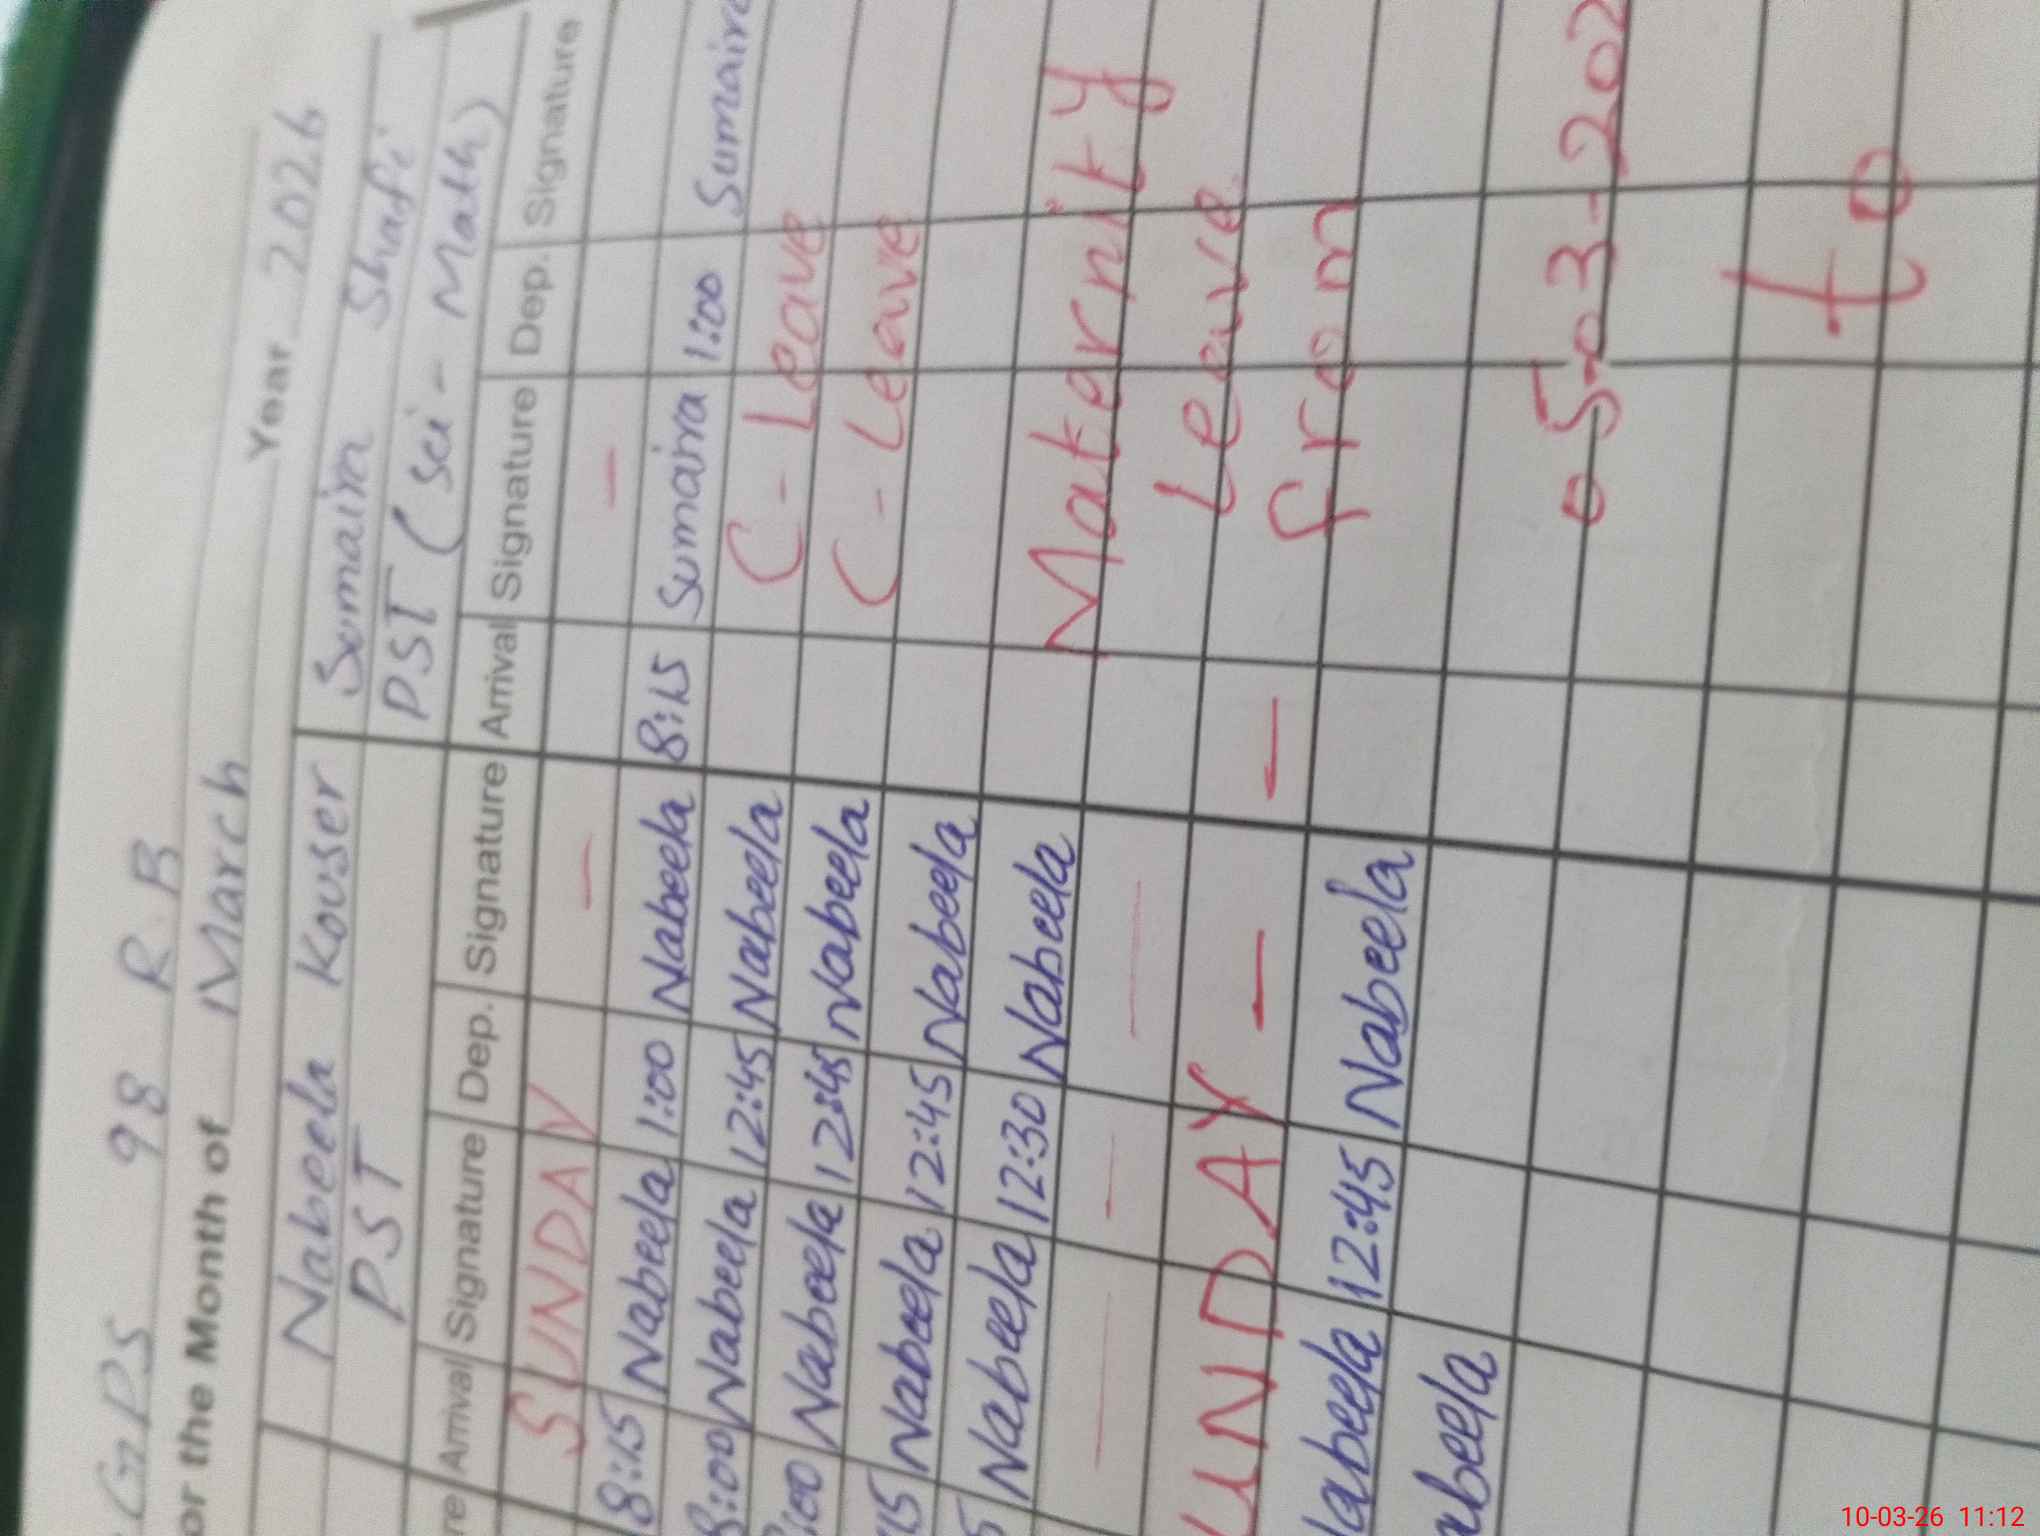 GPS 98 R.B
or the Month of March Year 2026
Nabeela Kouser Sumaira Shafi
PST PST (Sci - Math)
re Arrival Signature Dep. Signature Arrival Signature Dep. Signature
SUNDAY — —
8:15 Nabeela 1:00 Nabeela 8:15 Sumaira 1:00 Sumaira
8:00 Nabeela 12:45 Nabeela C-Leave
:00 Nabeela 12:45 Nabeela C-Leave
15 Nabeela 12:45 Nabeela
5 Nabeela 12:30 Nabeela Maternity
— — — Leave
UNDAY — — from
abeela 12:45 Nabeela
abeela 05-03-202
to
10-03-26 11:12